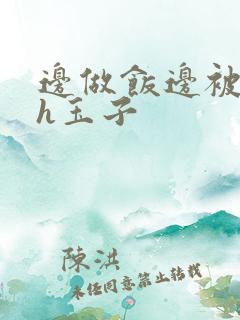 邊做飯邊被
h玉子
陳洪
未经同意禁止转载